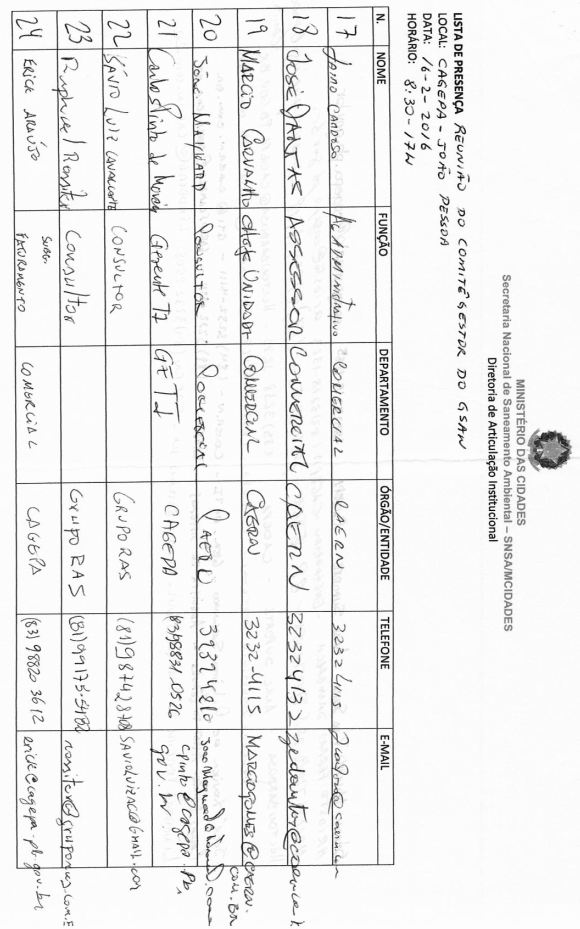 MINISTÉRIO DAS CIDADES
Secretaria Nacional de Saneamento Ambiental – SNSA/MCIDADES
Diretoria de Articulação Institucional
LISTA DE PRESENÇA REUNIÃO DO COMITÊ GESTOR DO GSAN
LOCAL: CAGEPA - JOÃO PESSOA
DATA: 16-2-2016
HORÁRIO: 8:30-17h
N. NOME FUNÇÃO DEPARTAMENTO ÓRGÃO/ENTIDADE TELEFONE E-MAIL
17 CARDOSO ADMINISTRATIVO COMERCIAL CAERN 3232 4115
18 JOSÉ DANTAS ASSESSOR COMERCIAL CAERN 32324132
19 MARCIO CARVALHO CHEFE UNIDADE COMERCIAL CAERN 3232-4115
20 JOÃO MAYNARD CONSULTOR COMERCIAL
21 Carlos Pinto de Morais Gerente TI GETI CAGEPA (83)98831.0526 cpinto@cagepa.pb.
gov.br
22 SÁVIO LUIZ CAVALCANTE CONSULTOR GRUPO RAS (81)987428708 SAVIOLUIZAC@GMAIL.COM
23 Raphael Rossiter Consultor GRUPO RAS (81)99175.5482
24 ERICK ARAÚJO SUBG.
FATURAMENTO COMERCIAL CAGEPA (83)98820 3612 erick@cagepa.pb.gov.br